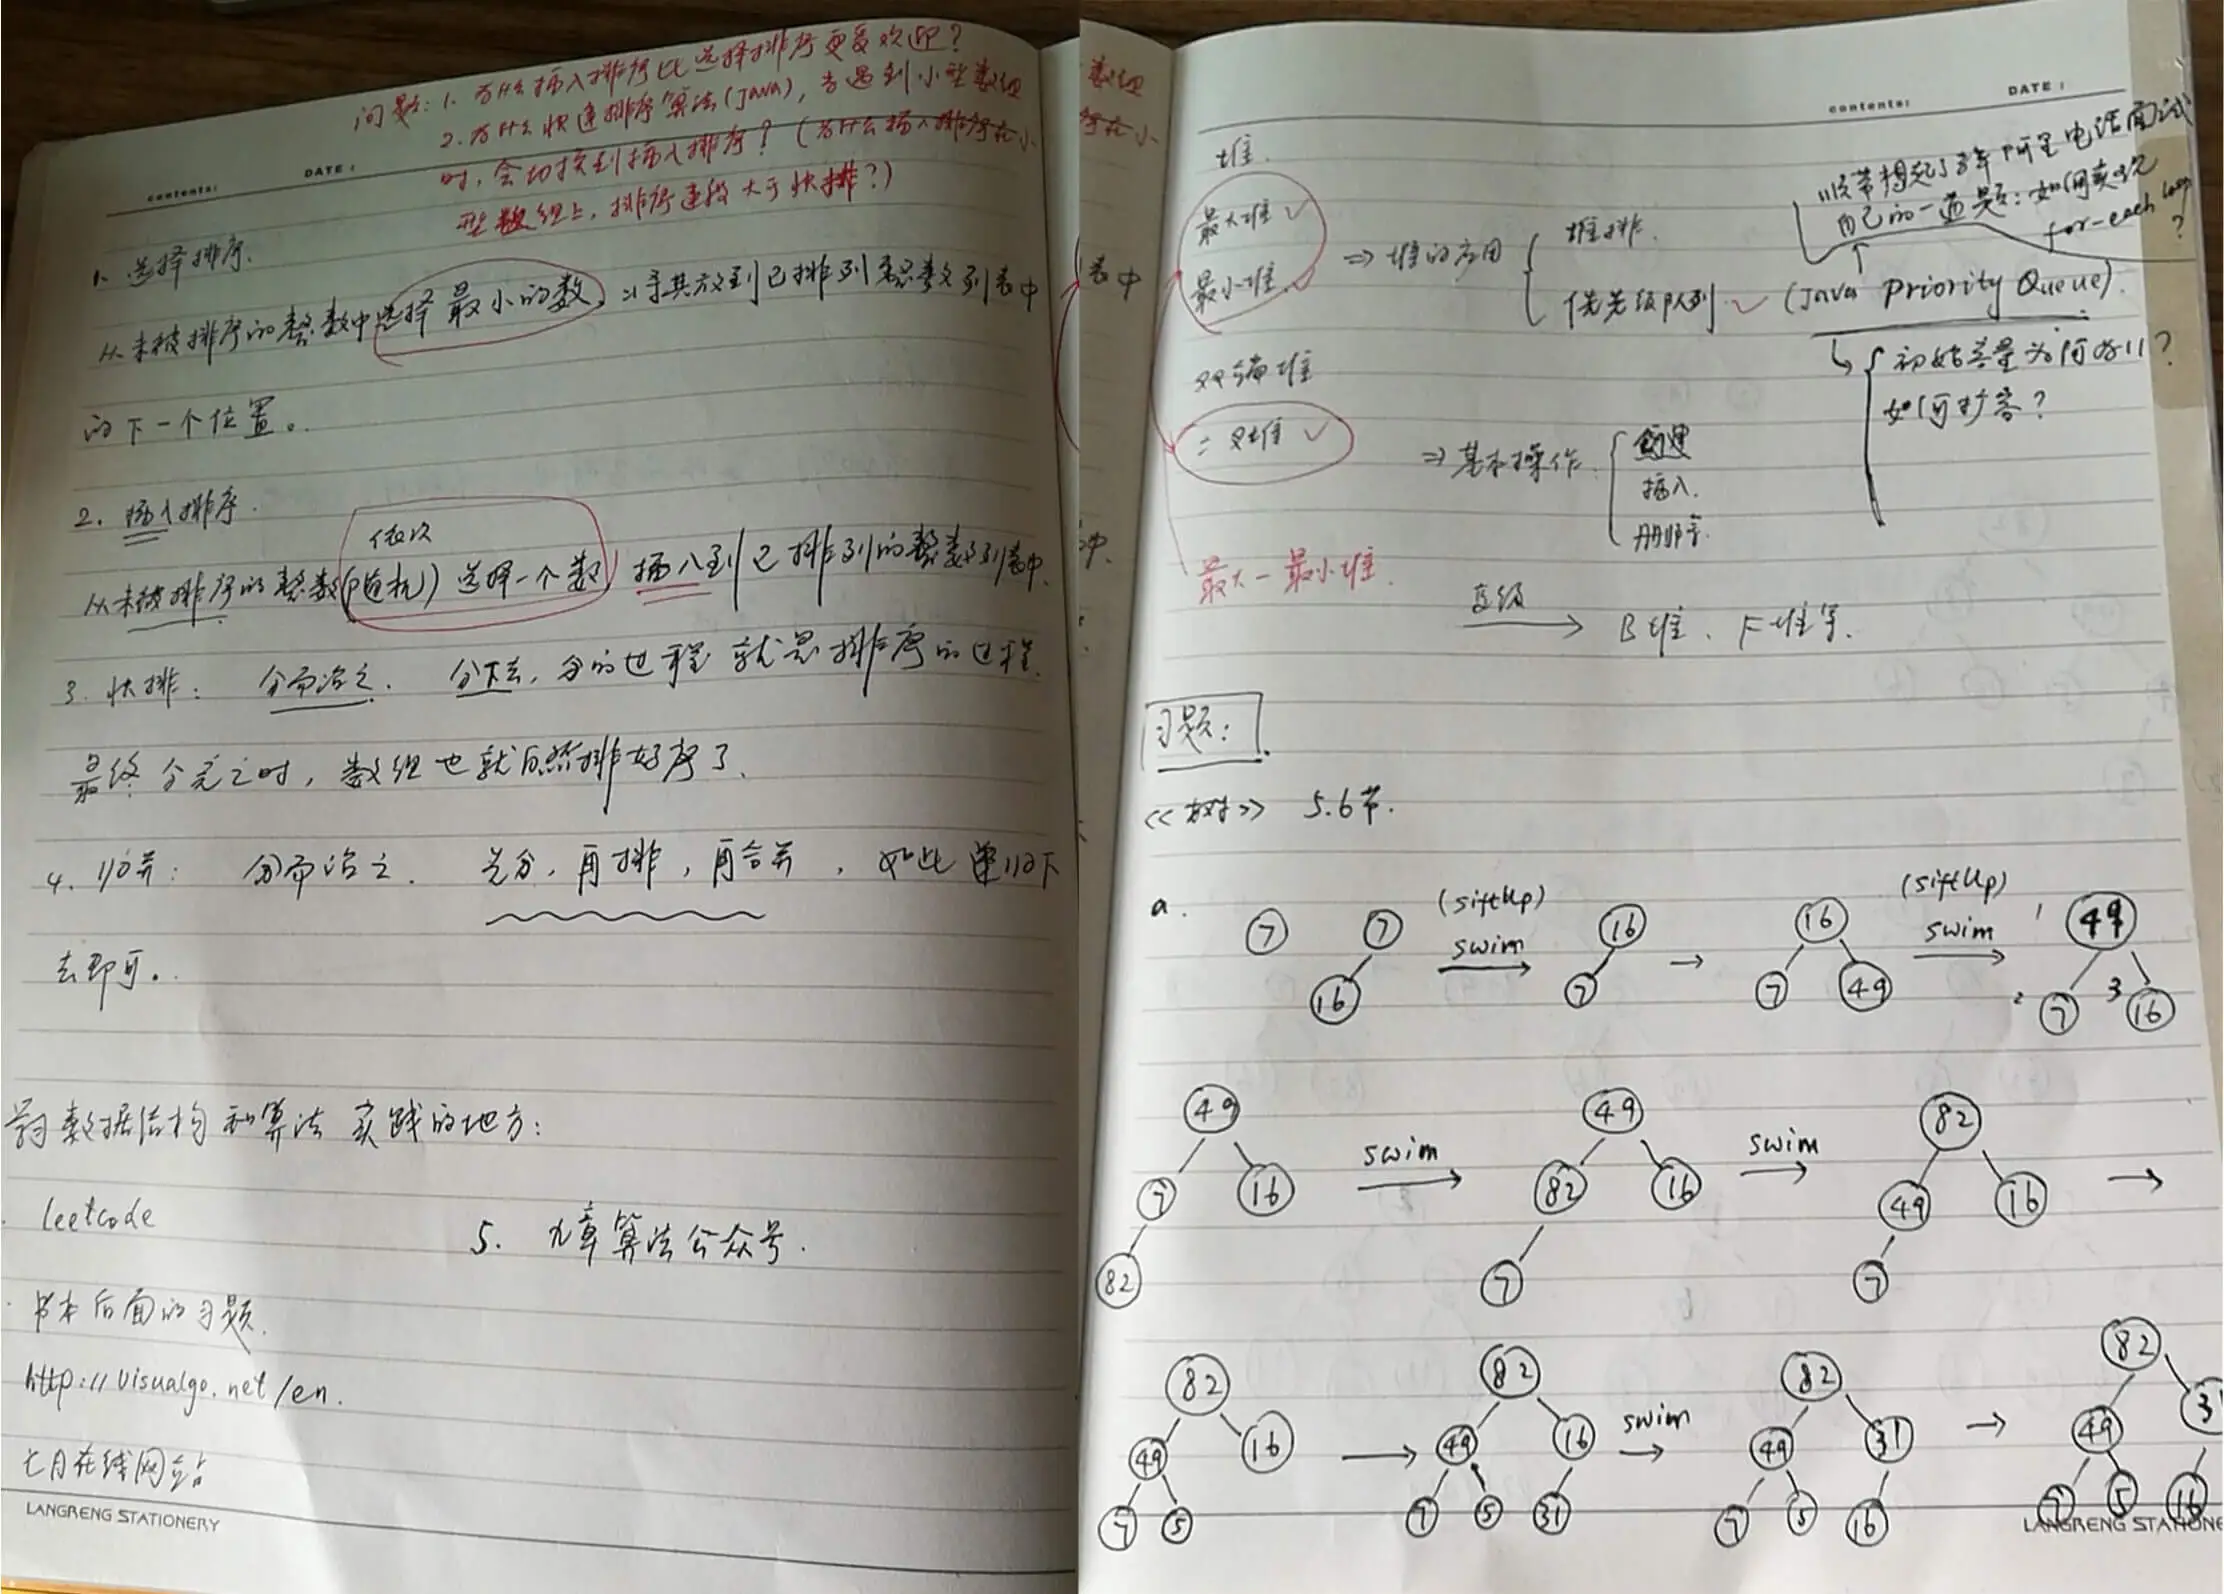 问题：1. 为什么插入排序比选择排序更受欢迎？
2. 为什么快速排序算法(java)，当遇到小型数组
时，会切换到插入排序？(为什么插入排序在小
型数组上，排序速度大于快排？)
contents:
DATE :
1. 选择排序.
从未被排序的整数中选择最小的数，将其放到已排列整数列表中
的下一个位置。
2. 插入排序.
依次
从未被排序的整数(随机)选择一个数，插入到已排列的整数列表中.
3. 快排： 分而治之. 分下去，分的过程就是排序的过程.
最终分完之时，数组也就自然排好序了.
4. 归并： 分而治之. 先分，再排，再合并，如此递归下
去即可。
数据结构和算法实践的地方：
leetcode
5. 九章算法公众号.
书本后面的习题.
http://visualgo.net/en.
七月在线网站
LANGRENG STATIONERY
数组
序在小
表中
中.
contents:
DATE :
顺带想起了去年阿里电话面试
自己的一道题：如何实现
for-each loop
?
堆.
最大堆 ✓
最小堆 ✓
⇒ 堆的应用
堆排.
优先级队列 ✓ (Java Priority Queue).
初始容量为何为11?
如何扩容?
双端堆
二叉堆 ✓
⇒ 基本操作
创建
插入.
删除.
最大-最小堆.
高级
B堆、F堆等.
习题：
<<树>> 5.6节.
a.
(siftUp)
swim
→
(siftUp)
swim
7
7
16
16
7
16
7
49
1
49
2
7
3
16
49
7
16
82
swim
49
82
16
7
swim
82
49
16
7
→
82
49
16
7
5
→
82
49
16
7
5
31
swim
82
49
31
7
5
16
→
82
49
3
7
5
16
LANGRENG STATIONE